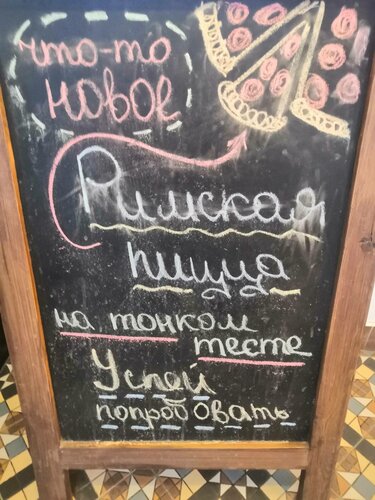 что-то
новое
Римская
пицца
на тонком
тесте
Успей
попробовать